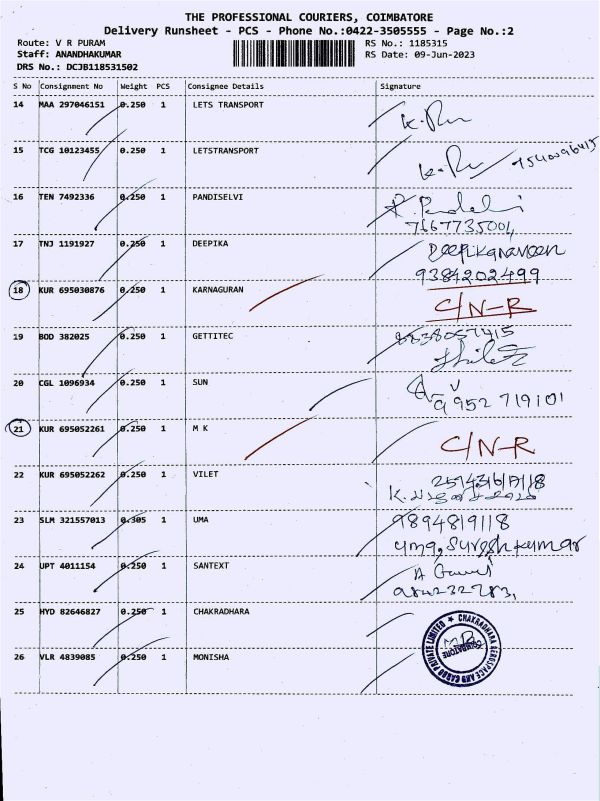 THE PROFESSIONAL COURIERS, COIMBATORE
Delivery Runsheet - PCS - Phone No.:0422-3505555 - Page No.:2
Route: V R PURAM RS No.: 1185315
Staff: ANANDHAKUMAR RS Date: 09-Jun-2023
DRS No.: DCJB118531502
S No Consignment No Weight PCS Consignee Details Signature
14 MAA 297046151 0.250 1 LETS TRANSPORT
15 TCG 10123455 0.250 1 LETSTRANSPORT
16 TEN 7492336 0.250 1 PANDISELVI
7667735004
17 TNJ 1191927 0.250 1 DEEPIKA
9384202499
18 KUR 695030876 0.250 1 KARNAGURAN C/N-R
19 BOD 382025 0.250 1 GETTITEC
20 CGL 1096934 0.250 1 SUN
9952 719101
21 KUR 695052261 0.250 1 M K C/N-R
22 KUR 695052262 0.250 1 VILET
23 SLM 321557013 0.305 1 UMA 9894819118
uma, Sureshkumar
24 UPT 4011154 0.250 1 SANTEXT
25 HYD 82646827 0.250 1 CHAKRADHARA
26 VLR 4839085 0.250 1 MONISHA
CHAKRADHARA AEROSPACE AND CARGO PRIVATE LIMITED
COIMBATORE